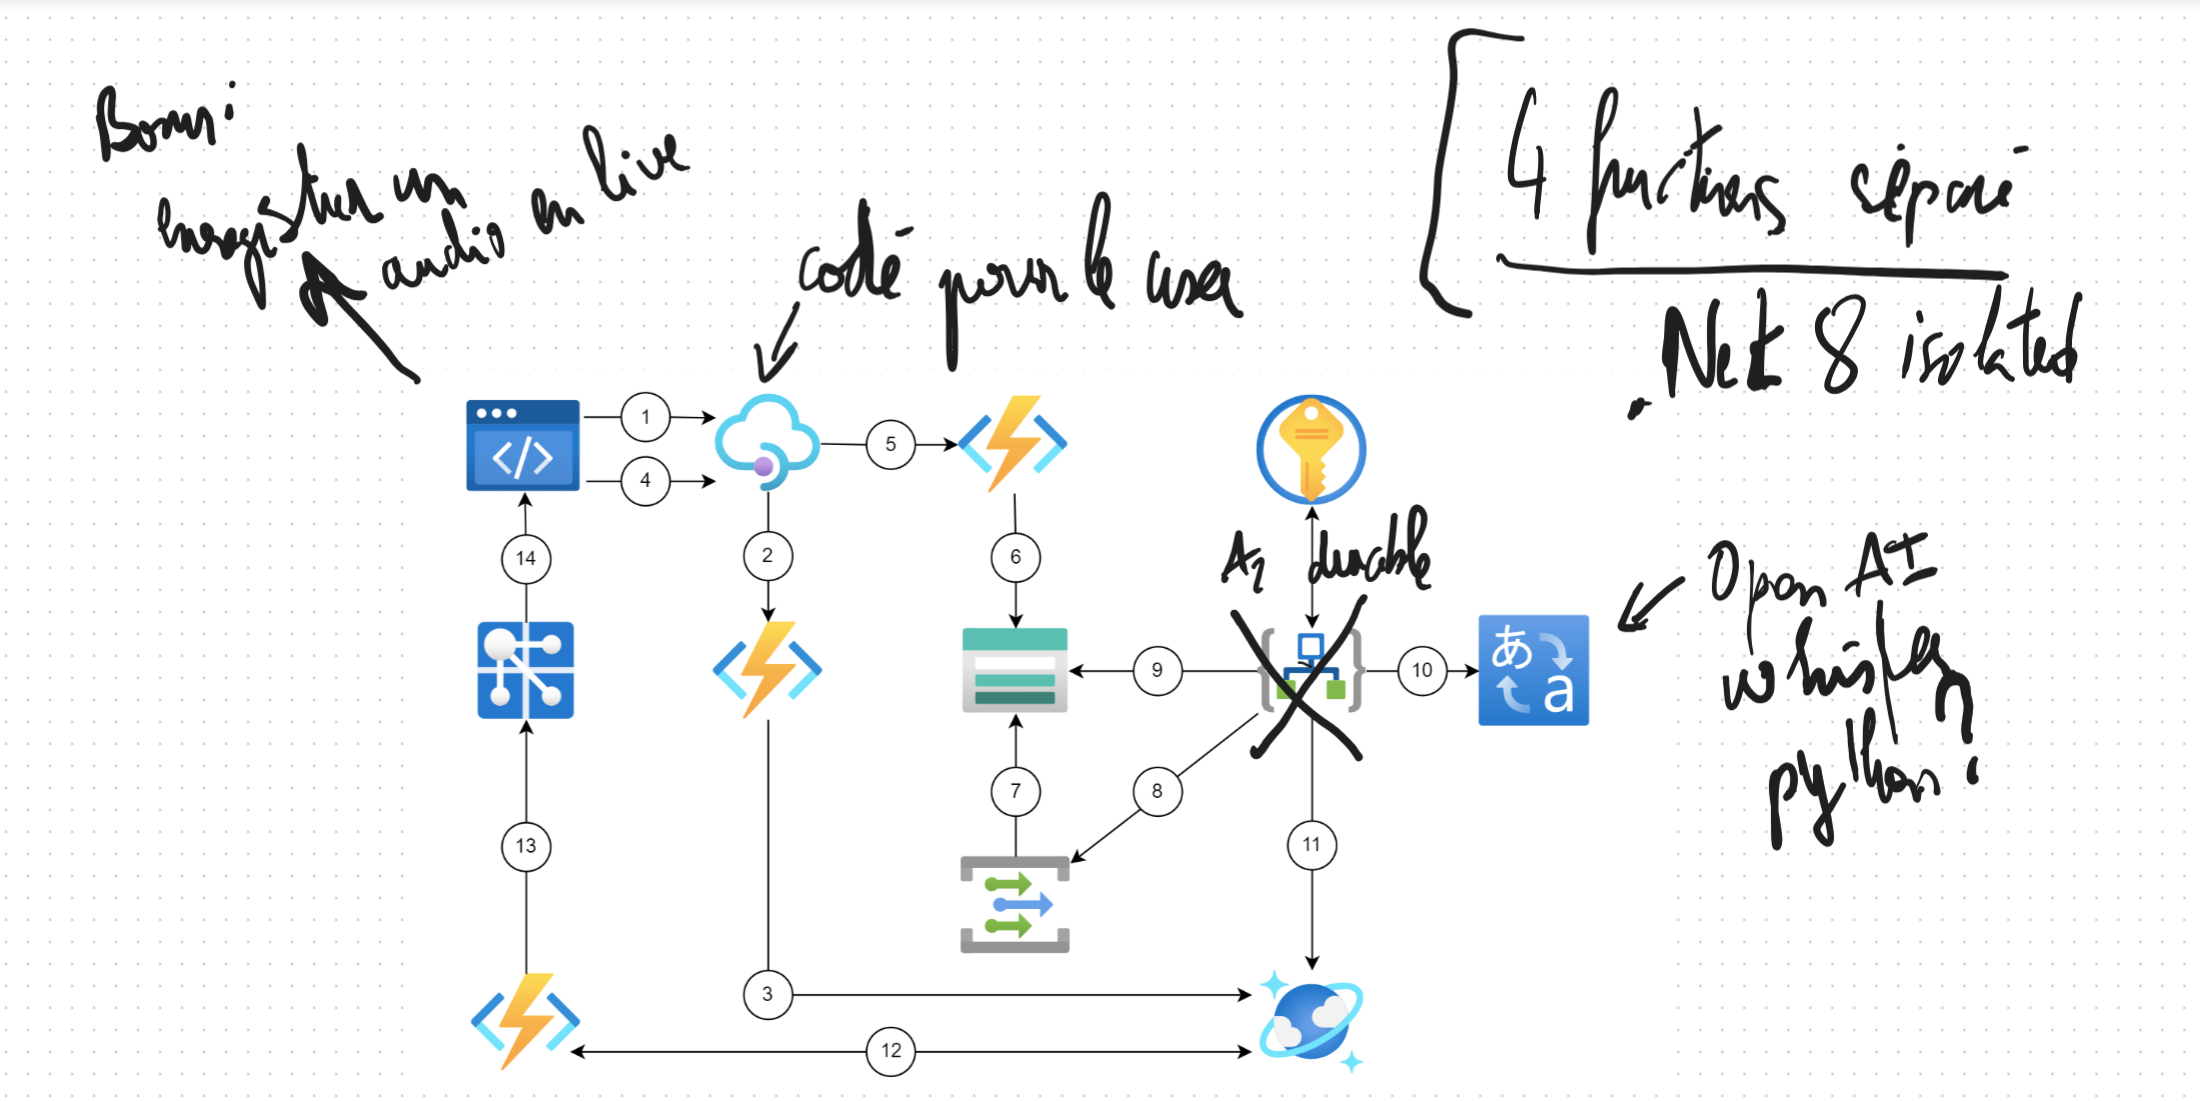 Bonus:
enregistrer un
audio en live
codé pour le user
4 functions séparé
.Net 8 isolated
Az durable
Open AI
whisper
python?
1
4
5
14
2
6
9
10
7
8
13
11
3
12
あ
a